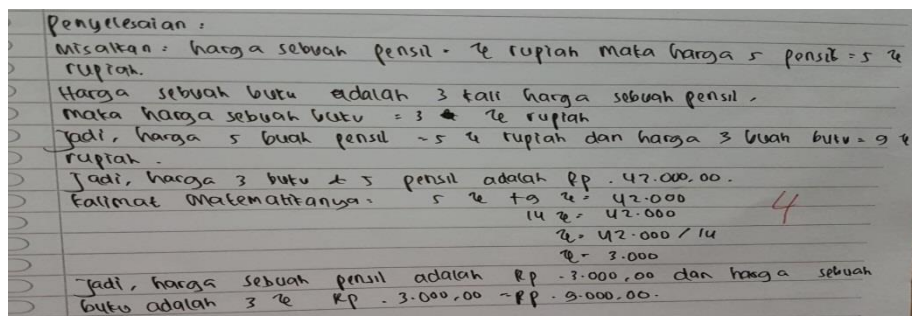 Penyelesaian :
Misalkan : harga sebuah pensil = x rupiah maka harga 5 pensil = 5 x
rupiah.
Harga sebuah buku adalah 3 kali harga sebuah pensil.
maka harga sebuah buku = 3 x rupiah
Jadi, harga 5 buah pensil = 5 x rupiah dan harga 3 buah buku = 9 x
rupiah.
Jadi, harga 3 buku + 5 pensil adalah Rp. 42.000,00.
Kalimat Matematikanya : 5 x + 9 x = 42.000
14 x = 42.000
4
x = 42.000 / 14
x = 3.000
Jadi, harga sebuah pensil adalah Rp. 3.000,00 dan harga sebuah
buku adalah 3 x Rp. 3.000,00 = Rp. 9.000,00.